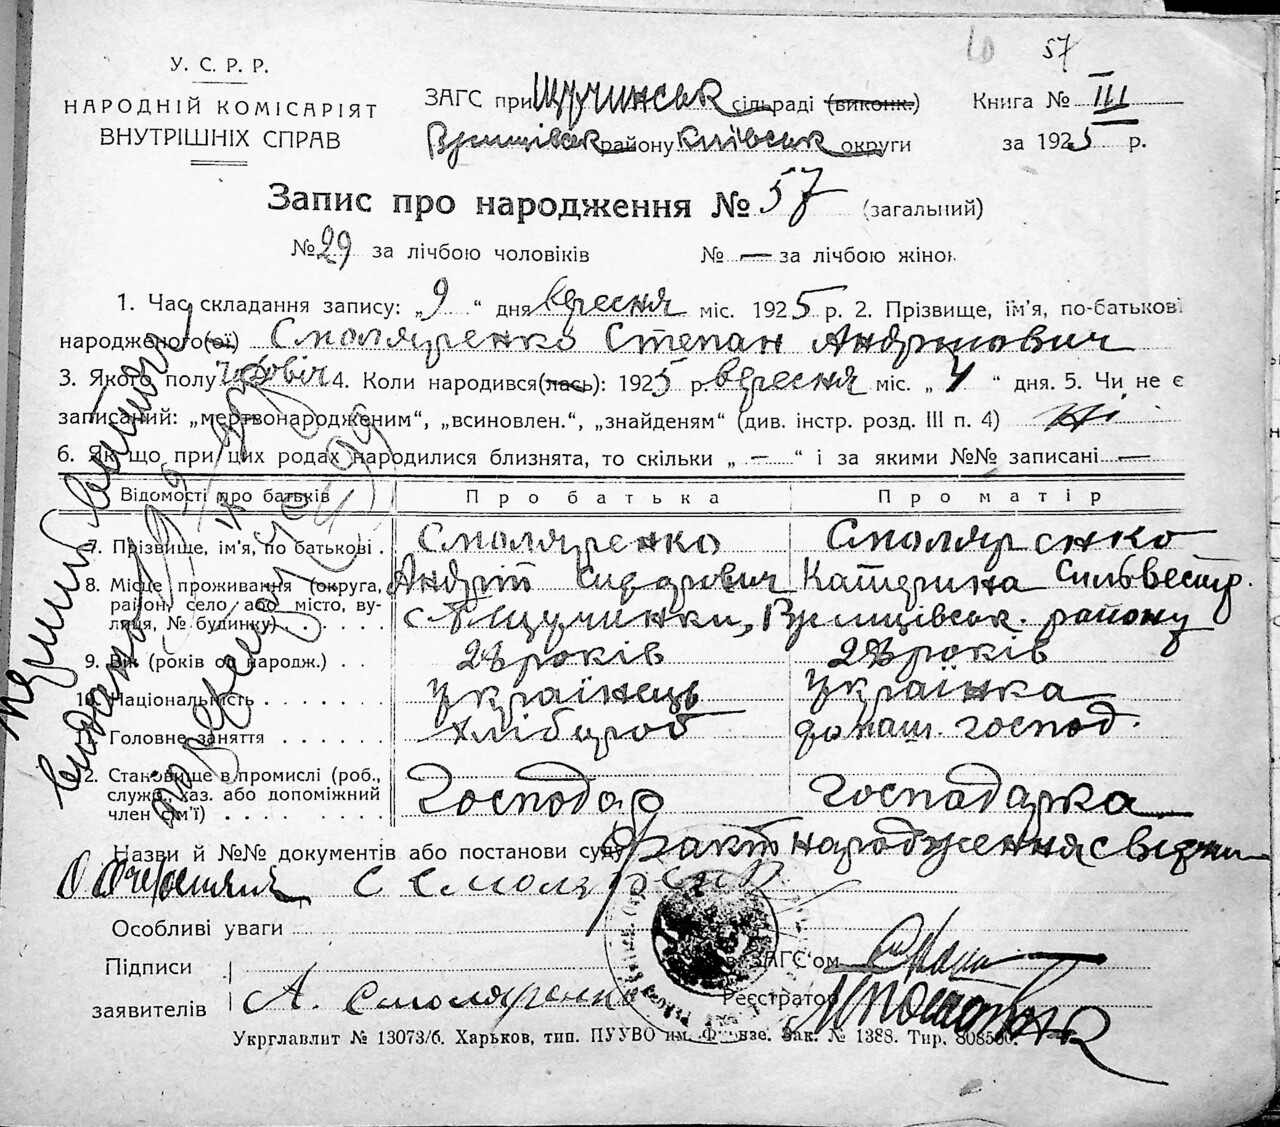 57
У. С. Р. Р.
НАРОДНІЙ КОМІСАРІЯТ
ВНУТРІШНІХ СПРАВ
ЗАГС при Щучинськ сільраді (виконк.)
Ржищівськ району Київськ округи
Книга № III
за 1925 р.
Запис про народження № 57 (загальний)
№ 29 за лічбою чоловіків № — за лічбою жінок
1. Час складання запису: „9“ дня вересня міс. 1925 р. 2. Прізвище, ім'я, по-батькові
народженого(ої) Смоляренко Степан Андрійович
3. Якого полу чоловіч 4. Коли народився(лась): 1925 р. вересня міс. „4“ дня. 5. Чи не є
записаний: „мертвонародженим“, „всиновлен.“, „знайденям“ (див. інстр. розд. III п. 4) ні
6. Якщо при цих родах народилися близнята, то скільки „ — “ і за якими №№ записані —
Відомості про батьків Про батька Про матір
7. Прізвище, ім'я, по батькові . Смоляренко Смоляренко
Андрій Сидорович Катерина Сильвестр.
8. Місце проживання (округа, район, село або місто, вулиця, № будинку) с. Щучинки, Ржищівськ. району
9. Вік (років од народж.) . . 28 років 28 років
10. Національність . . . . . . . українець українка
Головне заняття . . . . . хлібороб домаш. господ.
12. Становище в промислі (роб., служ., хаз. або допоміжний член сім'ї) . . . . . . . . . Господар господарка
Назви й №№ документів або постанови суду факт народження
Смоляренко
Особливі уваги
Підписи
заявителів А. Смоляренко
ЗАГС'ом
Реєстратор
Укрглавлит № 13073/б. Харьков, тип. ПУУВО им. Фрунзе. Зак. № 1388. Тир. 808500.